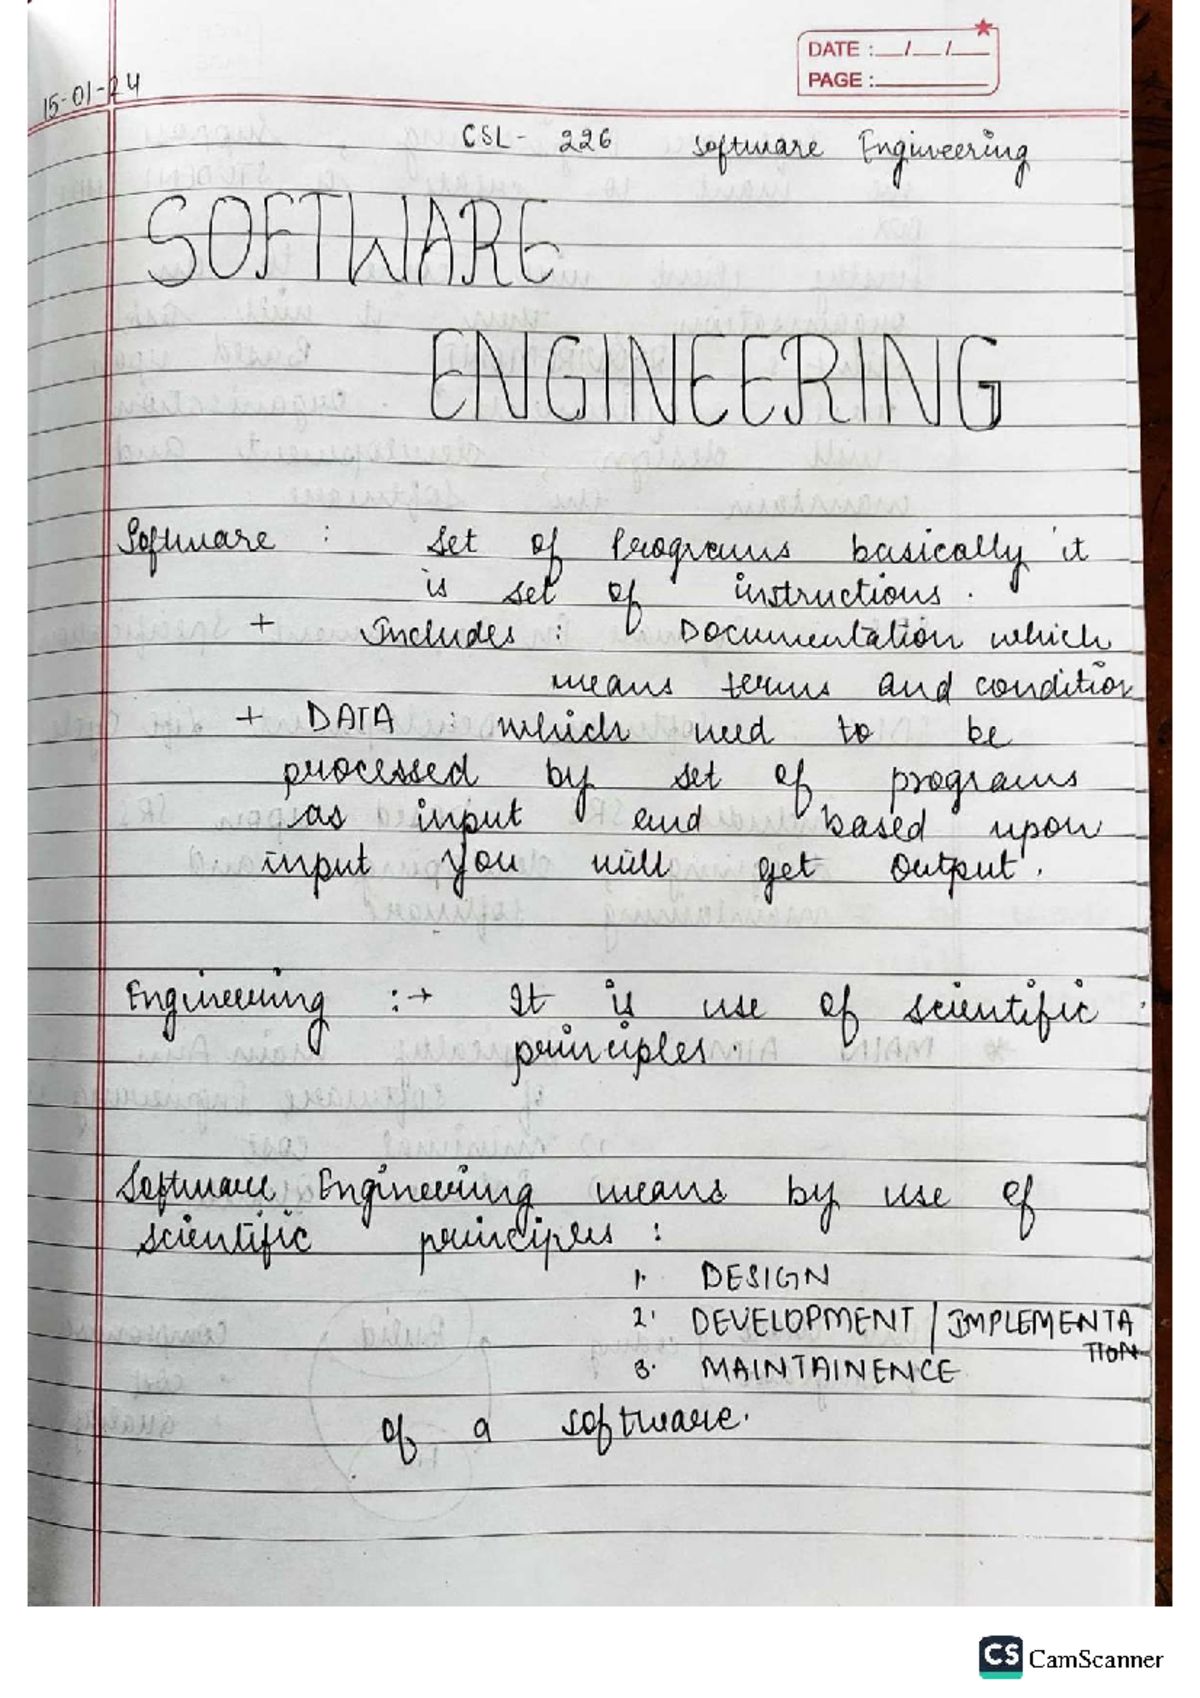 DATE : __/__/__
PAGE : ______
15-01-24
CSL- 226 Software Engineering
SOFTWARE
ENGINEERING
Software : Set of Programs basically it
is set of instructions.
+ Includes : Documentation which
means terms and condition
+ DATA : which need to be
processed by set of programs
as input and based upon
input you will get output.
Engineering :→ It is use of scientific
principles.
Software Engineering means by use of
scientific principles :
1. DESIGN
2. DEVELOPMENT / IMPLEMENTA
TION
3. MAINTAINENCE
of a software.
CS CamScanner